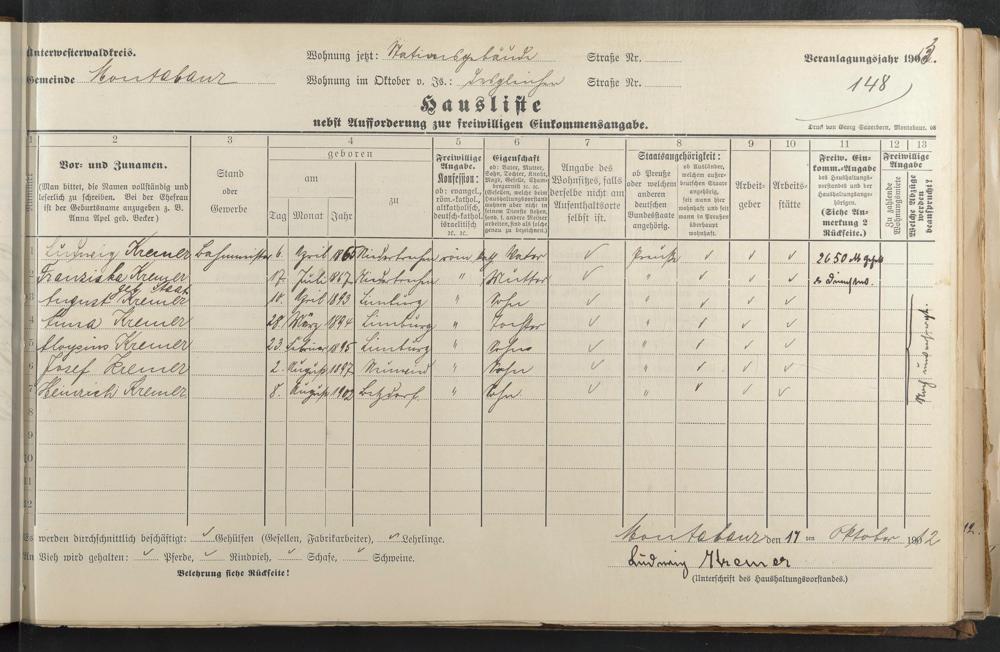 Unterwesterwaldkreis.
Wohnung jetzt: Stationsgebäude Straße Nr.
Veranlagungsjahr 1903.
Gemeinde Montabaur
Wohnung im Oktober v. Js.: desgleichen Straße Nr.
148
Hausliste
nebst Aufforderung zur freiwilligen Einkommensangabe.
Druck von Georg Sauerborn, Montabaur.
1 2 3 4 5 6 7 8 9 10 11 12 13
Nummer
Vor- und Zunamen.
(Man bittet, die Namen vollständig und
leserlich zu schreiben. Bei der Ehefrau
ist der Geburtsname anzugeben z. B.
Anna Apel geb. Becker.)
Stand
oder
Gewerbe
geboren
am
zu
Tag Monat Jahr
Freiwillige
Angabe.
Konfession:
ob: evangel.,
röm.-kathol.,
altkatholisch,
deutsch-kathol.
israelitisch
ec. ec.
Eigenschaft
ob: Vater, Mutter,
Sohn, Tochter, Knecht,
Magd, Geselle,
Angabe des
Wohnsitzes, falls
derselbe nicht am
Aufenthaltsorte
selbst ist.
Staatsangehörigkeit:
ob Preuße
oder welchem
anderen
deutschen
Bundesstaate
angehörig.
ob Ausländer,
welchem außer-
deutschen Staate
angehörig,
seit wann hier
wohnhaft und seit
wann in Preußen
überhaupt
wohnhaft.
Arbeit-
geber
Arbeits-
stätte
Freiw. Ein-
komm.-Angabe
des Haushaltungs-
vorstandes und der
Haushaltungsange-
hörigen.
(Siehe An-
merkung 2
Rückseite.)
Freiwillige
Angabe
Zu zahlende
Wohnungsmiete
Welche Abzüge
werden
beansprucht?
1 Ludwig Kremer Bahnmeister 6. April 1865 Niedertiefen röm. kath. Vater Preuße 2650 M Gehalt
2 Franziska Kremer 17. Juli 1867 Niedertiefen " Mutter "
geb. Staat
3 August Kremer 10. April 1893 Limburg " Sohn "
4 Anna Kremer 28. März 1894 Limburg " Tochter "
5 Aloysius Kremer 23. Februar 1895 Limburg " Sohn "
6 Josef Kremer 2. August 1897 Neuwied " Sohn "
7 Heinrich Kremer 8. August 1902 Betzdorf " Sohn "
8
9
10
11
12
Es werden durchschnittlich beschäftigt: Gehülfen (Gesellen, Fabrikarbeiter), Lehrlinge.
An Vieh wird gehalten: Pferde, Rindvieh, Schafe, Schweine.
Belehrung siehe Rückseite!
Montabaur den 17 ten Oktober 1902
Ludwig Kremer
(Unterschrift des Haushaltungsvorstandes.)
12.